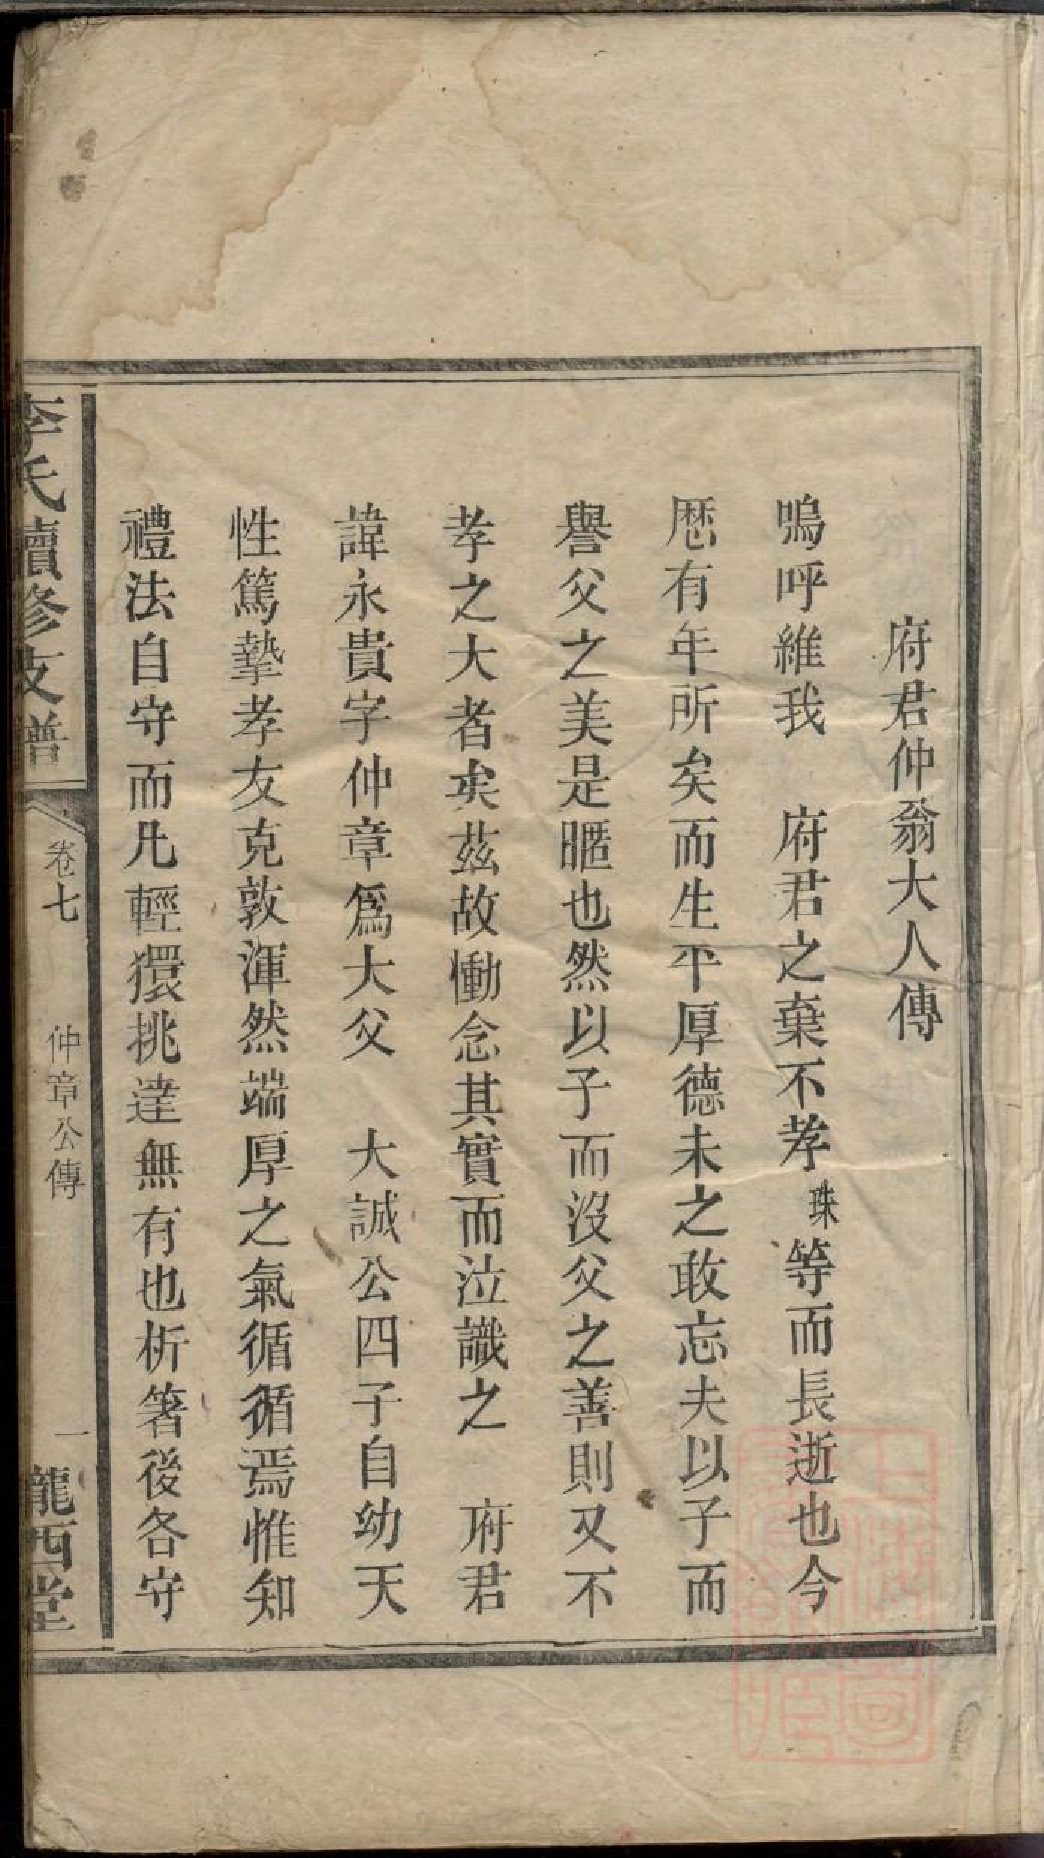 府君仲翁大人傳
嗚呼維我　府君之棄不孝珠等而長逝也今
歷有年所矣而生平厚德未之敢忘夫以子而
譽父之美是暱也然以子而沒父之善則又不
孝之大者矣茲故慟念其實而泣識之　府君
諱永貴字仲章爲大父　大誠公四子自幼天
性篤摯孝友克敦渾然端厚之氣循循焉惟知
禮法自守而凡輕獧挑達無有也析箸後各守
李氏續修支譜
卷七
仲章公傳
一
隴西堂